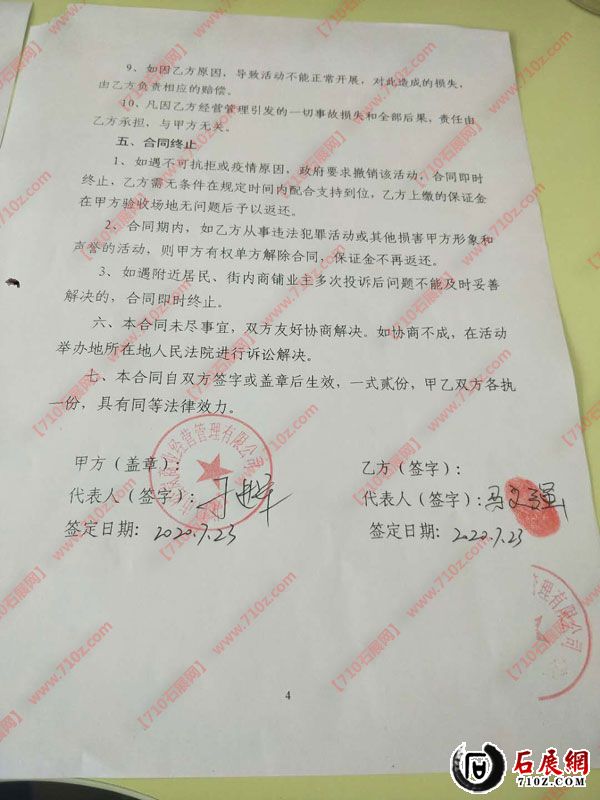 9、如因乙方原因，导致活动不能正常开展，对此造成的损失，
由乙方负责相应的赔偿。
10、凡因乙方经营管理引发的一切事故损失和全部后果，责任由
乙方承担，与甲方无关。
五、合同终止
1、如遇不可抗拒或疫情原因，政府要求撤销该活动，合同即时
终止，乙方需无条件在规定时间内配合支持到位，乙方上缴的保证金
在甲方验收场地无问题后予以返还。
2、合同期内，如乙方从事违法犯罪活动或其他损害甲方形象和
声誉的活动，则甲方有权单方解除合同，保证金不再返还。
3、如遇附近居民、街内商铺业主多次投诉后问题不能及时妥善
解决的，合同即时终止。
六、本合同未尽事宜，双方友好协商解决。如协商不成，在活动
举办地所在地人民法院进行诉讼解决。
七、本合同自双方签字或盖章后生效，一式贰份，甲乙双方各执
一份，具有同等法律效力。
甲方（盖章）：
乙方（签字）：
代表人（签字）：
代表人（签字）：马文强
签定日期：2020.7.23
签定日期：2020.7.23
经营管理有限公司
管理有限公司
4
【710石展网】www.710z.com
石展網
71OZ.COM